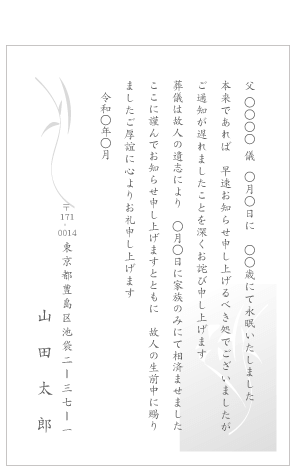 父 〇〇〇〇 儀 〇月〇日に 〇〇歳にて永眠いたしました
本来であれば 早速お知らせ申し上げるべき処でございましたが
ご通知が遅れましたことを深くお詫び申し上げます
葬儀は故人の遺志により 〇月〇日に家族のみにて相済ませました
ここに謹んでお知らせ申し上げますとともに 故人の生前中に賜り
ましたご厚誼に心よりお礼申し上げます
令和〇年〇月
〒171-0014
東京都豊島区池袋二ー三七ー一
山田太郎